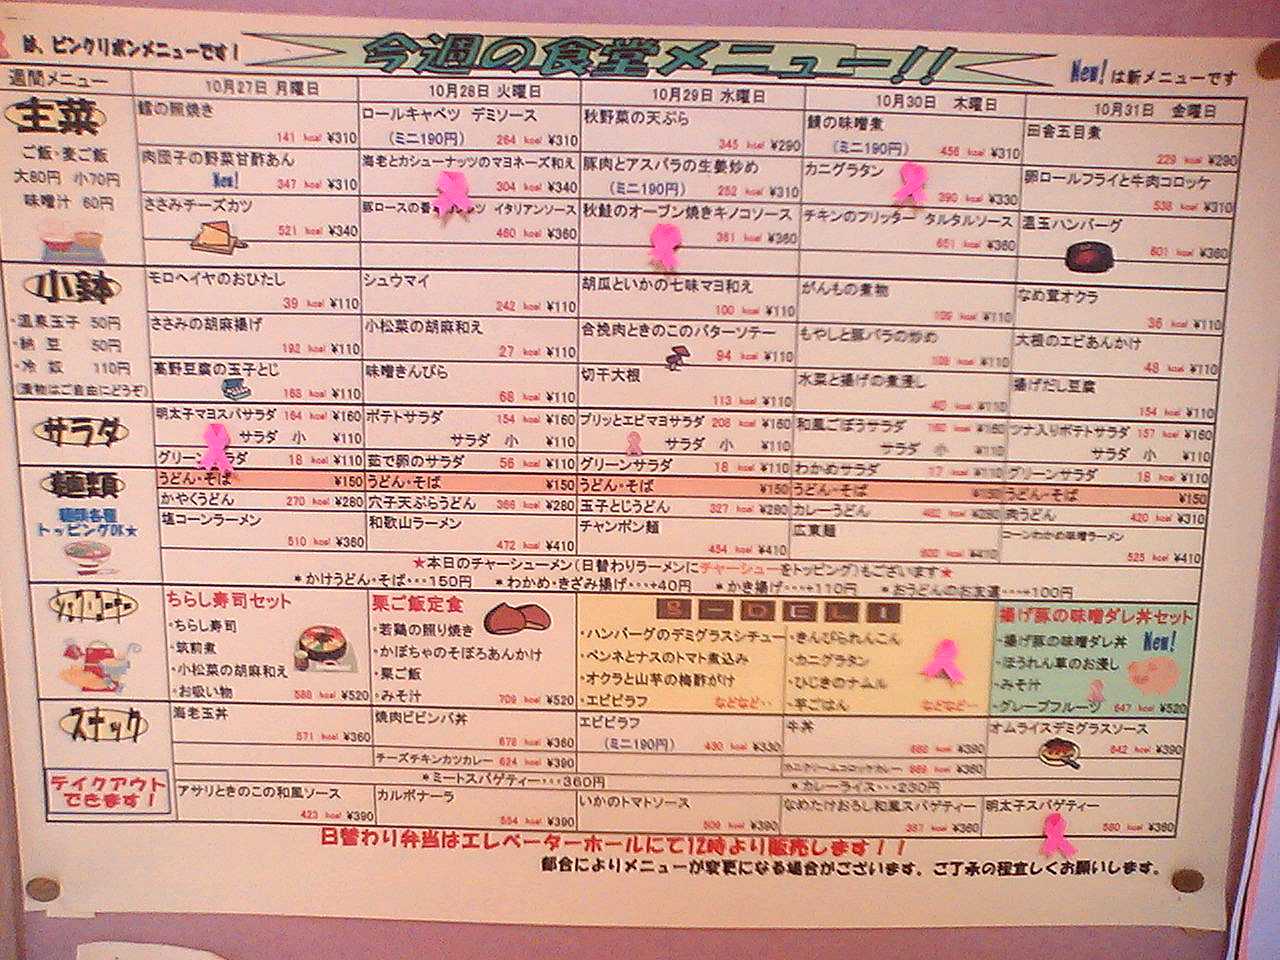 は、ピンクリボンメニューです!
今週の食堂メニュー!!
New!は新メニューです
週間メニュー 10月27日 月曜日 10月28日 火曜日 10月29日 水曜日 10月30日 木曜日 10月31日 金曜日
主菜
ご飯・麦ご飯
大80円 小70円
味噌汁 60円
鱈の照焼き
141 kcal ¥310
ロールキャベツ デミソース
(ミニ190円) 264 kcal ¥310
秋野菜の天ぷら
345 kcal ¥290
鯖の味噌煮
(ミニ190円) 456 kcal ¥310
田舎五目煮
229 kcal ¥290
肉団子の野菜甘酢あん
New! 347 kcal ¥310
海老とカシューナッツのマヨネーズ和え
304 kcal ¥340
豚肉とアスパラの生姜炒め
(ミニ190円) 252 kcal ¥310
カニグラタン
390 kcal ¥330
卵ロールフライと牛肉コロッケ
538 kcal ¥310
ささみチーズカツ
521 kcal ¥340
豚ロースの香 イタリアンソース
460 kcal ¥360
秋鮭のオーブン焼きキノコソース
361 kcal ¥360
チキンのフリッター タルタルソース
651 kcal ¥360
温玉ハンバーグ
601 kcal ¥360
小鉢
・温泉玉子 50円
・納豆 50円
・冷奴 110円
(漬物はご自由にどうぞ)
モロヘイヤのおひたし
39 kcal ¥110
シュウマイ
242 kcal ¥110
胡瓜といかの七味マヨ和え
100 kcal ¥110
がんもの煮物
109 kcal ¥110
なめ茸オクラ
36 kcal ¥110
ささみの胡麻揚げ
192 kcal ¥110
小松菜の胡麻和え
27 kcal ¥110
合挽肉ときのこのバターソテー
94 kcal ¥110
もやしと豚バラの炒め
kcal ¥110
大根のエビあんかけ
48 kcal ¥110
高野豆腐の玉子とじ
168 kcal ¥110
味噌きんぴら
68 kcal ¥110
切干大根
113 kcal ¥110
水菜と揚げの煮浸し
kcal ¥110
揚げだし豆腐
154 kcal ¥110
サラダ
明太子マヨスパサラダ 164 kcal ¥160
サラダ 小 ¥110
ポテトサラダ 154 kcal ¥160
サラダ 小 ¥110
プリッとエビマヨサラダ 208 kcal ¥160
サラダ 小 ¥110
和風ごぼうサラダ kcal ¥160
サラダ 小 ¥110
ツナ入りポテトサラダ 157 kcal ¥160
サラダ 小 ¥110
グリーンサラダ 18 kcal ¥110
茹で卵のサラダ 56 kcal ¥110
グリーンサラダ 18 kcal ¥110
わかめサラダ 17 kcal ¥110
グリーンサラダ 18 kcal ¥110
麺類
麺類各種
トッピングOK★
うどん・そば ¥150 うどん・そば ¥150 うどん・そば ¥150 うどん・そば ¥150 うどん・そば ¥150
かやくうどん 270 kcal ¥280
穴子天ぷらうどん 366 kcal ¥280
玉子とじうどん 327 kcal ¥280
カレーうどん kcal ¥280
肉うどん 420 kcal ¥310
塩コーンラーメン
510 kcal ¥360
和歌山ラーメン
472 kcal ¥410
チャンポン麺
454 kcal ¥410
広東麺
kcal ¥410
コーンわかめ味噌ラーメン
525 kcal ¥410
★本日のチャーシューメン(日替わりラーメンにチャーシューをトッピング)もございます★
*かけうどん・そば…150円 *わかめ・きざみ揚げ…+40円 *かき揚げ…+110円 *おうどんのお友達…+100円
ショウコーナー
ちらし寿司セット
・ちらし寿司
・筑前煮
・小松菜の胡麻和え
・お吸い物 588 kcal ¥520
栗ご飯定食
・若鶏の照り焼き
・かぼちゃのそぼろあんかけ
・栗ご飯
・みそ汁 709 kcal ¥520
S-DELI
・ハンバーグのデミグラスシチュー
・ペンネとナスのトマト煮込み
・オクラと山芋の梅酢がけ
・エビピラフ などなど・・
・きんぴられんこん
・カニグラタン
・ひじきのナムル
・芋ごはん などなど・・
揚げ豚の味噌ダレ丼セット
・揚げ豚の味噌ダレ丼 New!
・ほうれん草のお浸し
・みそ汁
・グレープフルーツ 647 kcal ¥520
スナック
海老玉丼
571 kcal ¥360
焼肉ビビンバ丼
678 kcal ¥360
エビピラフ
(ミニ190円) 430 kcal ¥330
牛丼
kcal ¥390
オムライスデミグラスソース
642 kcal ¥390
チーズチキンカツカレー 624 kcal ¥390
カニクリームコロッケカレー 869 kcal ¥360
*ミートスパゲティー…360円 *カレーライス…230円
テイクアウト
できます!
アサリときのこの和風ソース
423 kcal ¥390
カルボナーラ
554 kcal ¥390
いかのトマトソース
509 kcal ¥390
なめたけおろし和風スパゲティー
367 kcal ¥360
明太子スパゲティー
580 kcal ¥360
日替わり弁当はエレベーターホールにて12時より販売します!!
都合によりメニューが変更になる場合がございます。ご了承の程宜しくお願いします。